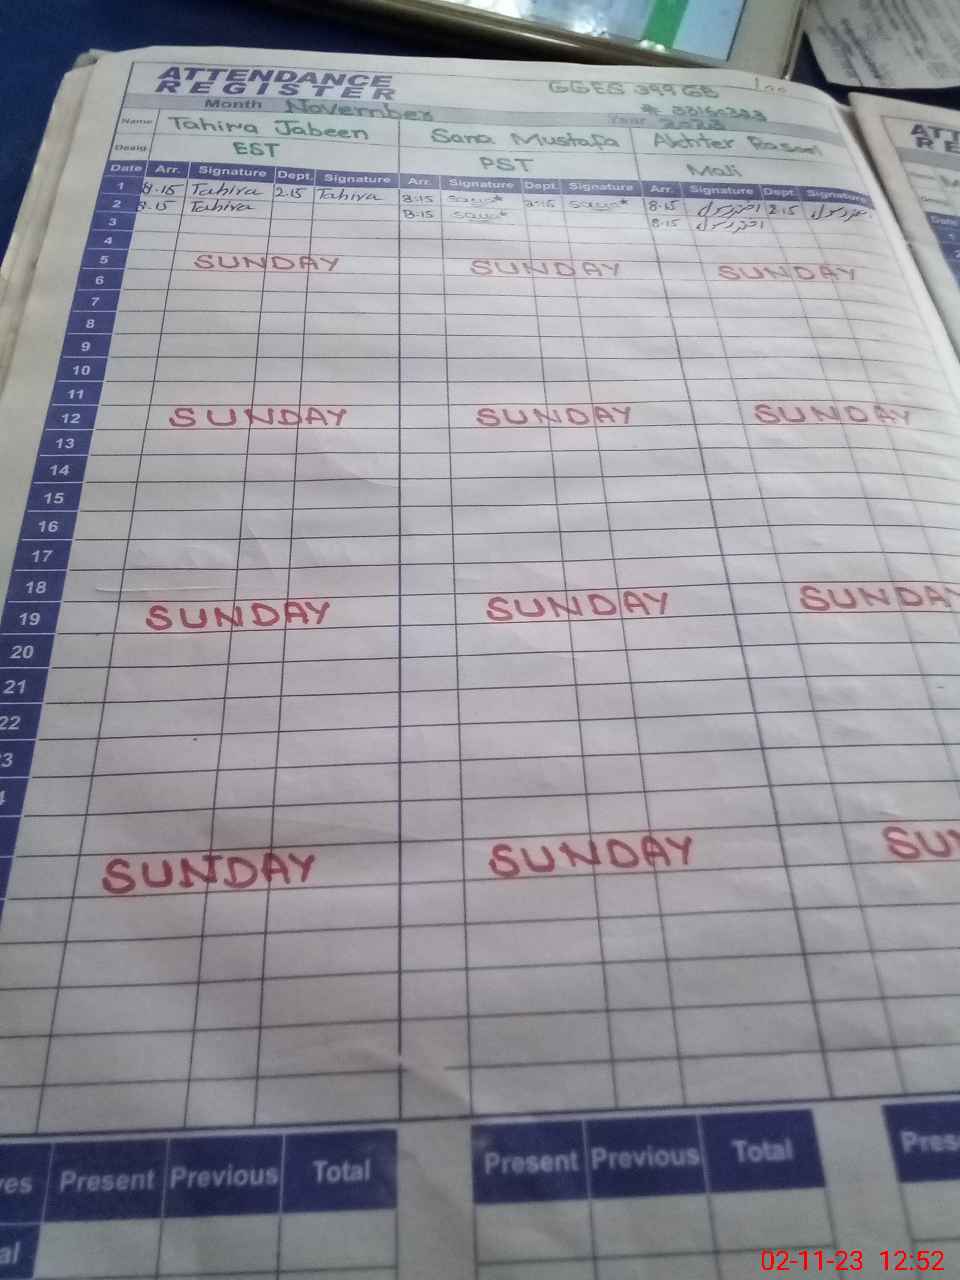 ATTENDANCE
REGISTER
GGES 399 GB
Month November
Year 2023
Name Tahira Jabeen Sana Mustafa Akhter Rasool
Desig. EST PST Mali
Date Arr. Signature Dept. Signature Arr. Signature Dept. Signature Arr. Signature Dept. Signature
1 8.15 Tahira 2.15 Tahira 8:15 2:15 8.15 اختر رسول 2.15 اختر رسول
2 8.15 Tahira 8:15 8.15 اختر رسول
3
4
5 SUNDAY SUNDAY SUNDAY
6
7
8
9
10
11
12 SUNDAY SUNDAY SUNDAY
13
14
15
16
17
18
19 SUNDAY SUNDAY SUNDAY
20
21
22
SUNDAY SUNDAY
Present Previous Total Present Previous Total
02-11-23 12:52